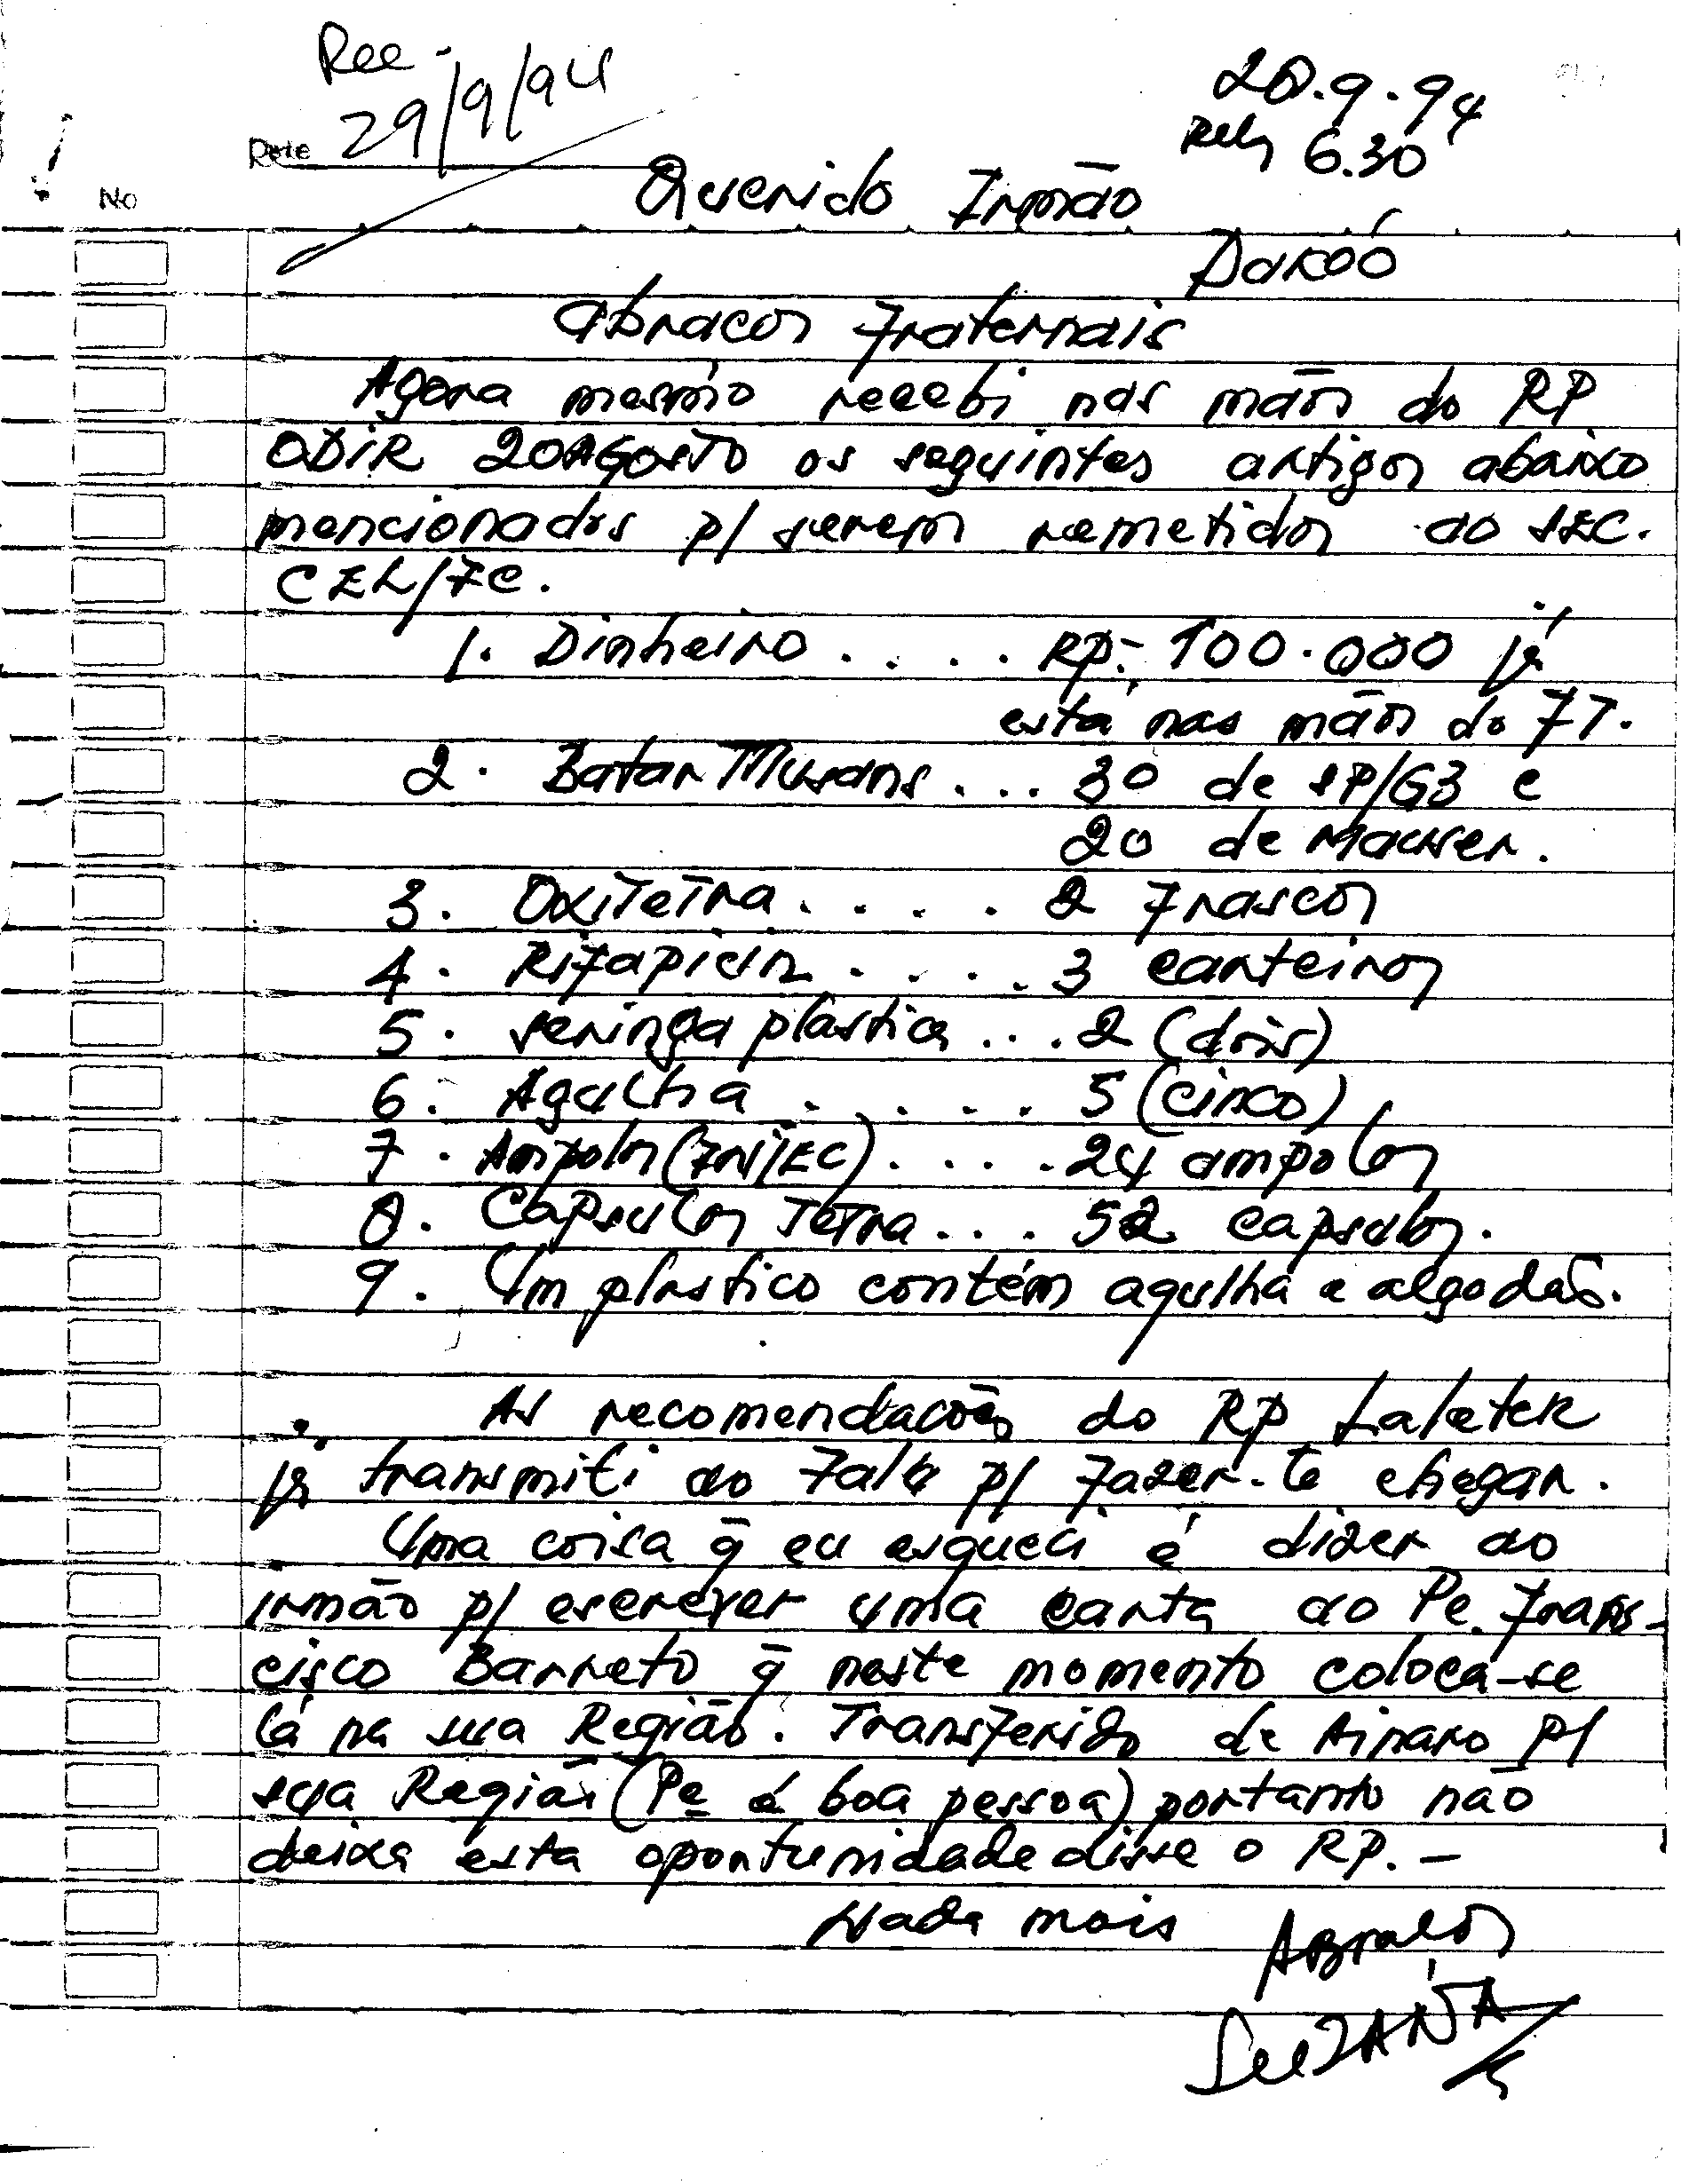 Rec -
29/9/94
28.9.94
6.30
Date
No
Querido Irmão
Daroó
Abracos Fraternais
Agora mesmo recebi nas mãos do RP
ODIR 20AGOSTO os seguintes artigos abaixo
mencionados p/ serem remetidos ao SEC.
CEL/FC.
1. Dinheiro . . . . RP: 100.000 já
está nas mãos do FT.
2. Batar Musans . . . 30 de SP/G3 e
20 de Mauser.
3. OxiTeTra . . . . 2 Frascos
4. Rifapicin . . . . 3 carteiros
5. seringa plastica . . . 2 (dois)
6. Agulha . . . . . 5 (cinco)
7. Ampolas (INJEC) . . . . 24 ampolas
8. Capsulas TeTra . . . 52 capsulas.
9. Um plastico contém agulha e algodão.
As recomendacões do RP Laletek
já transmiti ao Falu p/ Fazer-te chegar.
Uma coisa q̄ eu esqueci é dizer ao
irmão p/ escrever uma carta ao Pe. Frans-
cisco Barreto q̄ neste momento coloca-se
lá na sua Região. Transferido de Ainaro p/
sua Região (Pe é boa pessoa) portanto não
deixa esta oportunidade disse o RP. -
Nada mais Abraços